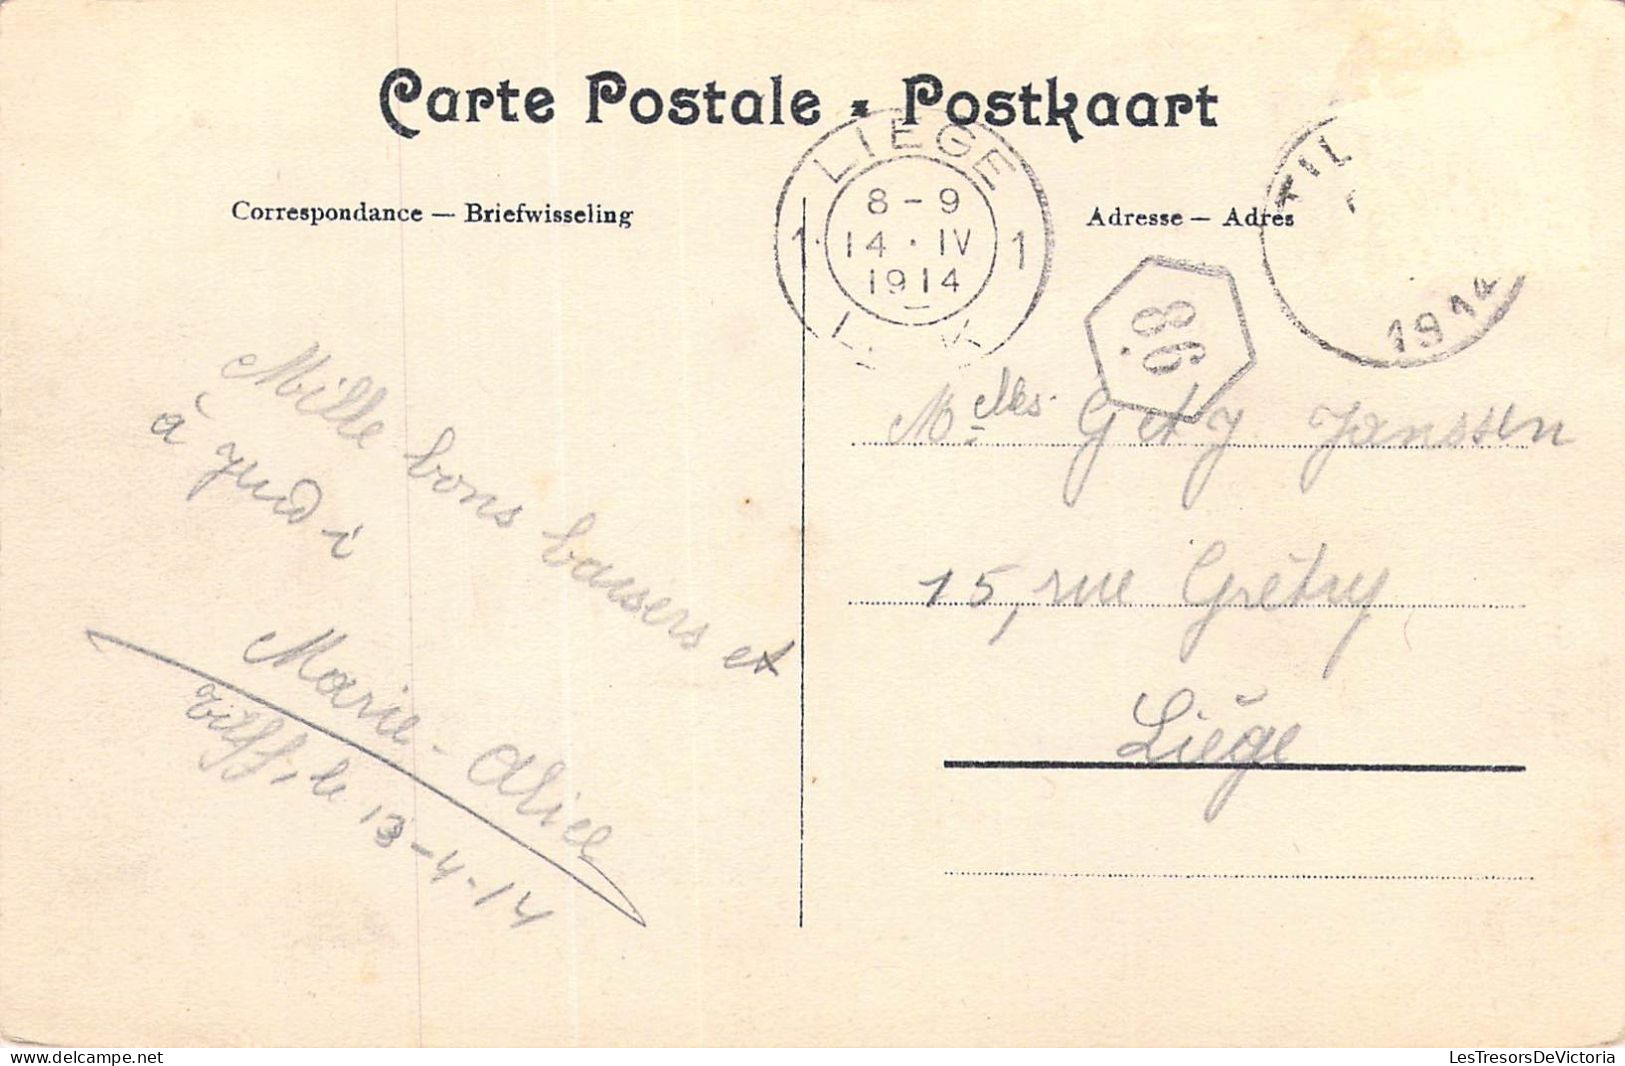 Carte Postale * Postkaart
Correspondance — Briefwisseling
Adresse — Adres
LIEGE
8 - 9
1 14 · IV 1
1914
L K
TIL
1914
98
Mille bons baisers et
à jeudi
Marie-Alice
Tilff, le 13-4-14
Melles G et J Janssen
15, rue Grétry
Liége
LesTresorsDeVictoria